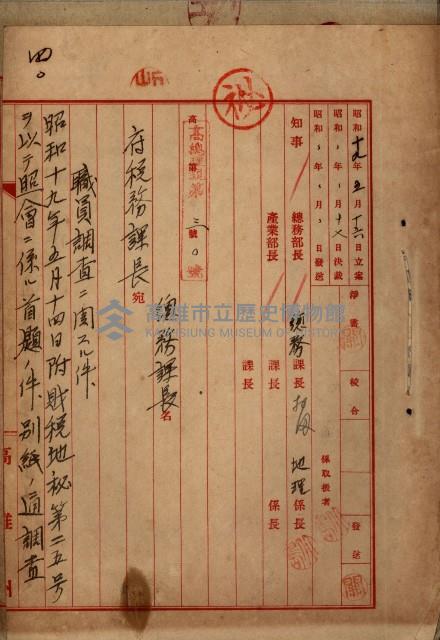 四。
秘
昭和十九年五月十六日立案
昭和 年 月十七日決裁
昭和 年 月 日發送
淨書
校合
發送
知事
總務部長
產業部長
總務課長
課長
課長
地理係長
係長
係取扱者
高
第
號
府税務課長宛
總務課長名
職員調査ニ関スル件
昭和十九年五月十四日附財税地秘第二五号
ヲ以テ照會ニ係ル首題ノ件別紙ノ通調査
高雄州
高雄市立歷史博物館
KAOHSIUNG MUSEUM OF HISTORY